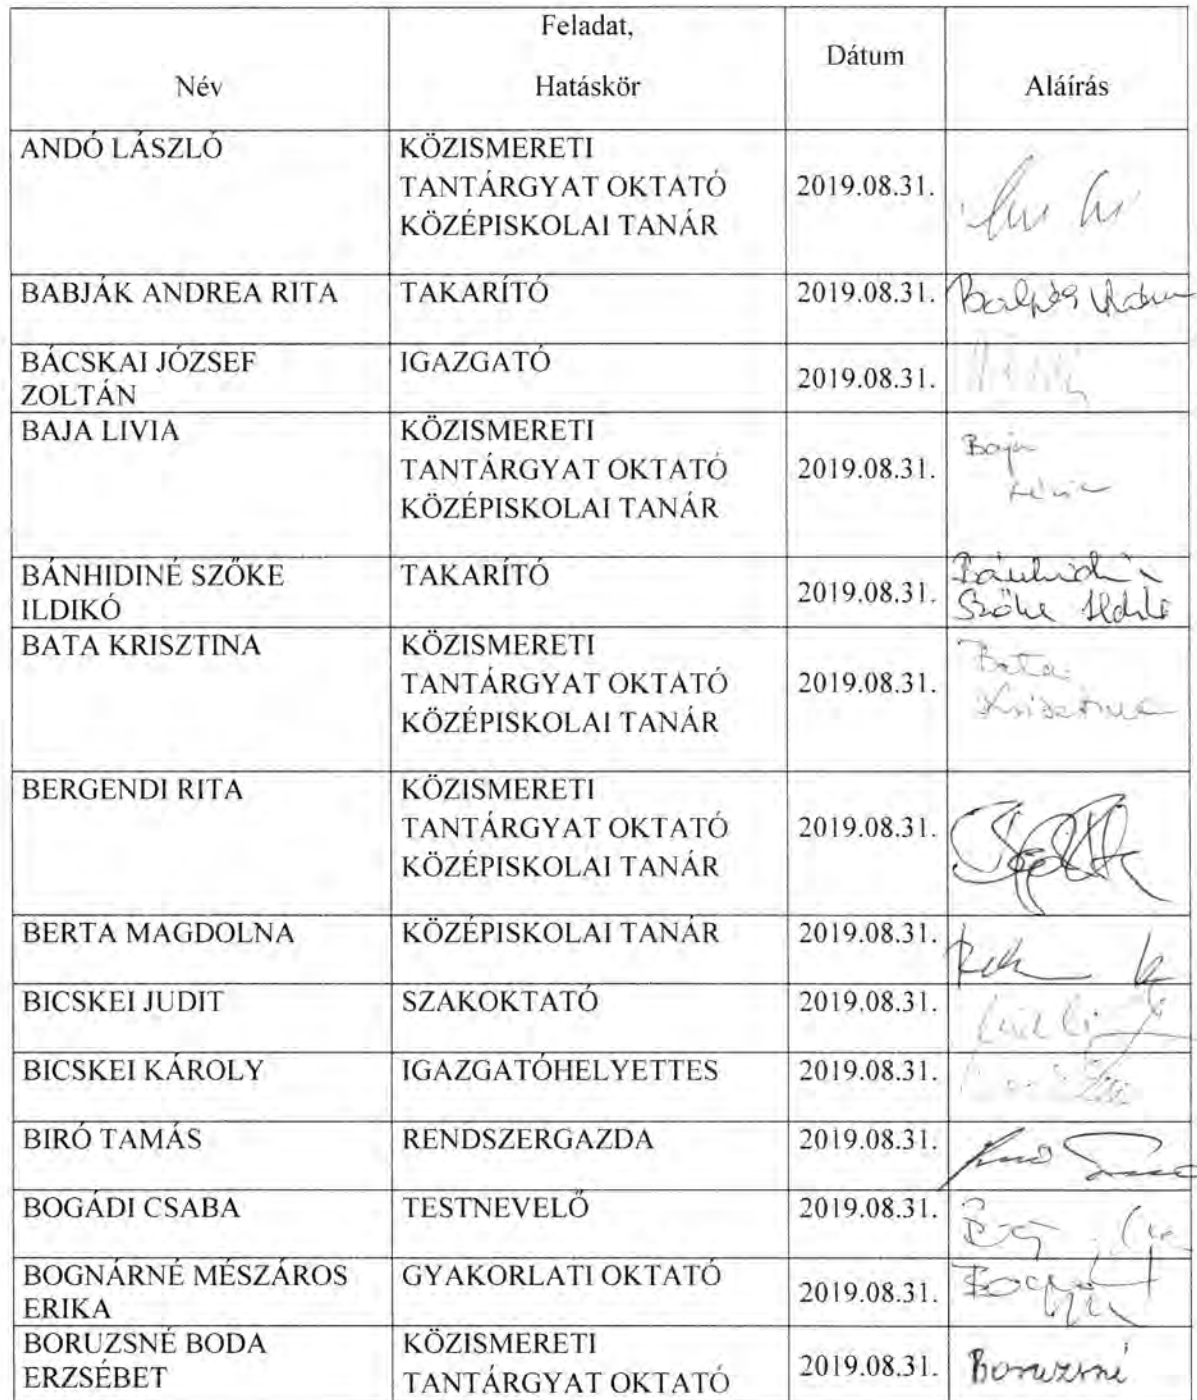 Név
Feladat,
Hatáskör
Dátum
Aláírás
ANDÓ LÁSZLÓ
KÖZISMERETI
TANTÁRGYAT OKTATÓ
KÖZÉPISKOLAI TANÁR
2019.08.31.
BABJÁK ANDREA RITA
TAKARÍTÓ
2019.08.31.
BÁCSKAI JÓZSEF
ZOLTÁN
IGAZGATÓ
2019.08.31.
BAJA LIVIA
KÖZISMERETI
TANTÁRGYAT OKTATÓ
KÖZÉPISKOLAI TANÁR
2019.08.31.
Baja
Lívia
BÁNHIDINÉ SZŐKE
ILDIKÓ
TAKARÍTÓ
2019.08.31.
Szőke Ildikó
BATA KRISZTINA
KÖZISMERETI
TANTÁRGYAT OKTATÓ
KÖZÉPISKOLAI TANÁR
2019.08.31.
Bata
Krisztina
BERGENDI RITA
KÖZISMERETI
TANTÁRGYAT OKTATÓ
KÖZÉPISKOLAI TANÁR
2019.08.31.
BERTA MAGDOLNA
KÖZÉPISKOLAI TANÁR
2019.08.31.
BICSKEI JUDIT
SZAKOKTATÓ
2019.08.31.
BICSKEI KÁROLY
IGAZGATÓHELYETTES
2019.08.31.
BIRÓ TAMÁS
RENDSZERGAZDA
2019.08.31.
BOGÁDI CSABA
TESTNEVELŐ
2019.08.31.
BOGNÁRNÉ MÉSZÁROS
ERIKA
GYAKORLATI OKTATÓ
2019.08.31.
BORUZSNÉ BODA
ERZSÉBET
KÖZISMERETI
TANTÁRGYAT OKTATÓ
2019.08.31.
Boruzsné